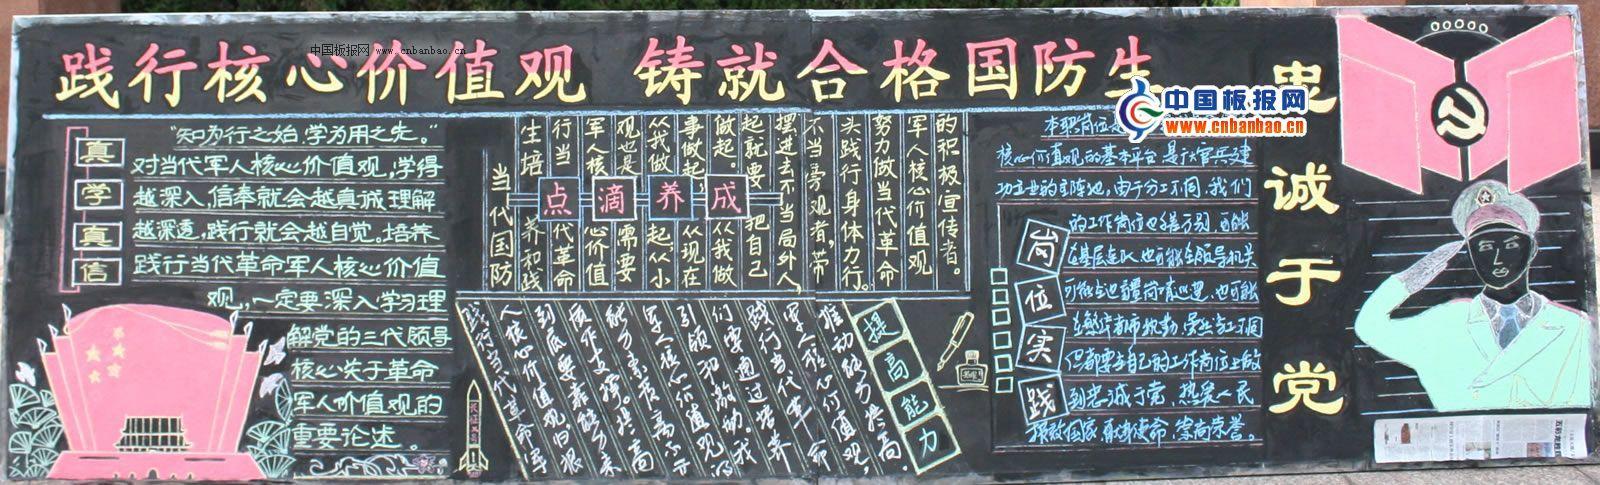 中国板报网 www.cnbanbao.cn
践行核心价值观 铸就合格国防生
中国板报网
www.cnbanbao.cn
忠诚于党
真学真信
“知为行之始,学为用之先。”
对当代军人核心价值观,学得
越深入,信奉就会越真诚理解
越深透,践行就会越自觉。培养
践行当代革命军人核心价值
观,一定要深入学习理
解党的三代领导
核心关于革命
军人价值观的
重要论述。
点滴养成
当代国防
生培养和践
行当代革命
军人核心价值
观也是需要
从我做起,从小
事做起,从现在
做起。从我做
起就要把自己
摆进去不当局外人,
不当旁观者,带
头践行身体力行。
努力做当代革命
军人核心价值观
的积极宣传者。
提高能力
推动能力提高。
军人核心价值观
践行当代革命
们要通过培养
引领和激励。我
军人核心价值观的
能力素质高不高
质作支撑。提高
到底要靠能力素
人核心价值观,归根
践行当代革命军
岗位实践
本职岗位是
核心价值观的基本平台 是广大官兵建
功立业的主阵地,由于分工不同,我们
的工作岗位也差万别,可能
在基层连队,也可能在领导机关
但都要与自己的工作岗位上做
到忠诚于党,热爱人民
报效国家,献身使命,崇尚荣誉。